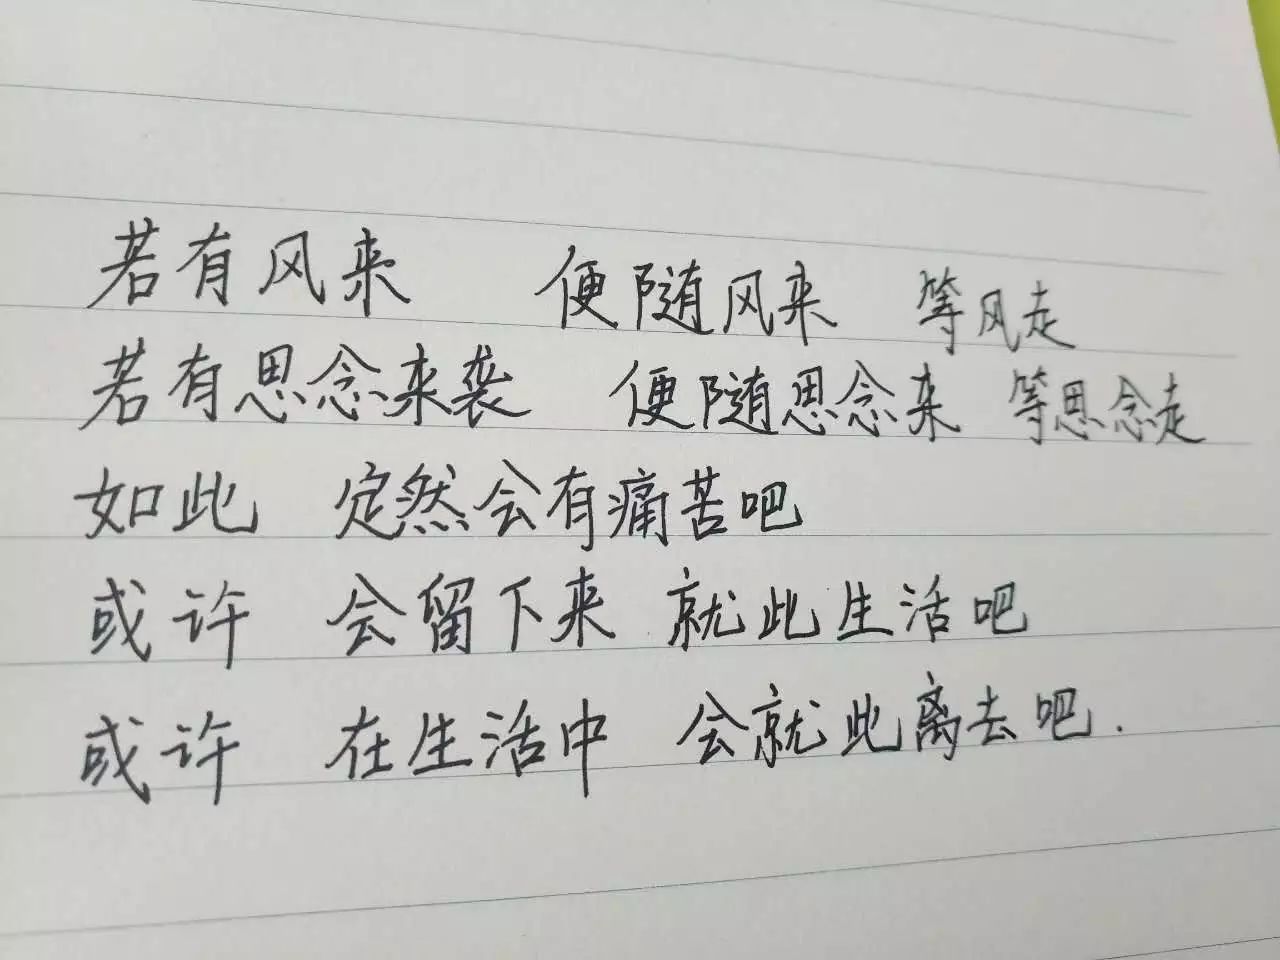 若有风来 便随风来 等风走
若有思念来袭 便随思念来 等思念走
如此 定然会有痛苦吧
或许 会留下来 就此生活吧
或许 在生活中 会就此离去吧.